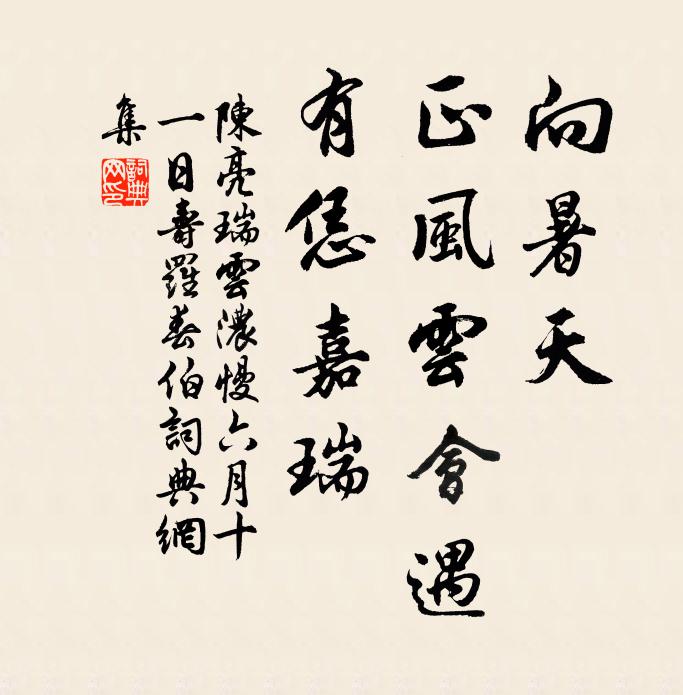 向暑天
正風雲會遇
有恁嘉瑞
陳亮瑞雲濃慢六月十
一日壽羅春伯詞典網
集
詞典
网印